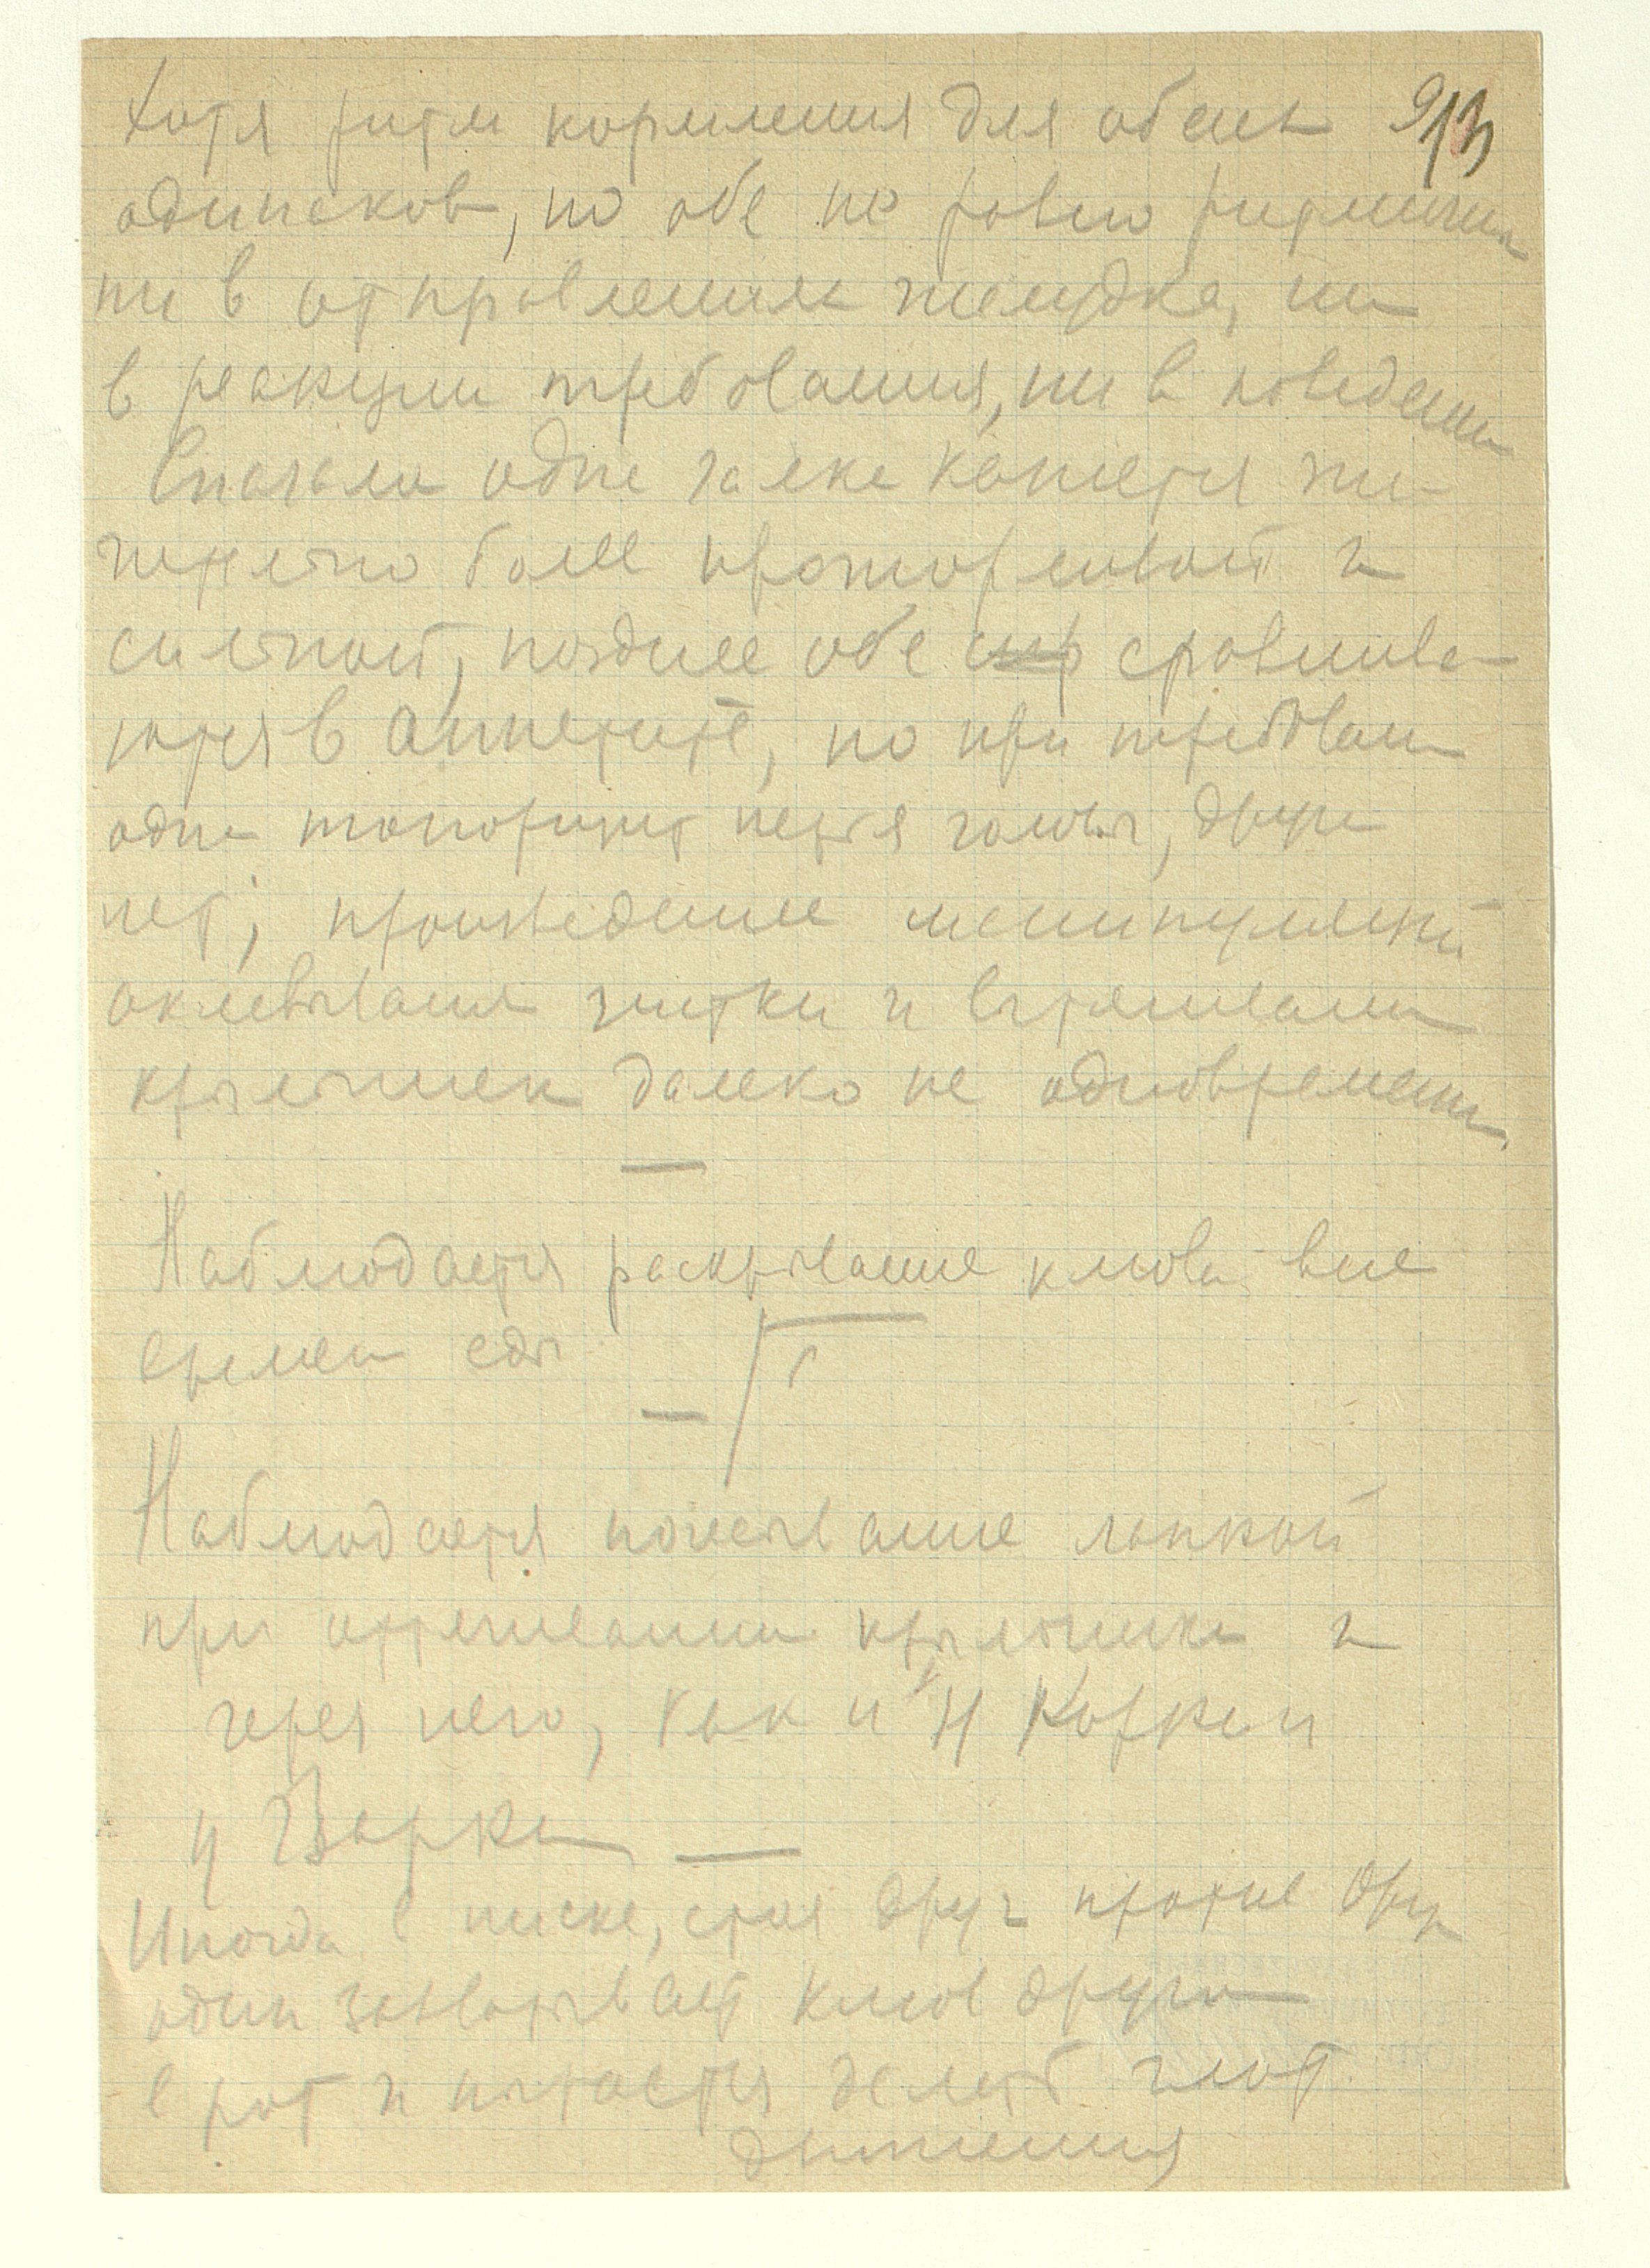 Хотя ритм кормления для обеих 913
одинаков, но обе не равно ритмичны
ни в отправлениях желудка, ни
в реакции требования, ни в поведении
Сначала одна галка кажется зна-
чительно более прожорливой и
сильной, позднее обе сравнива-
ются в аппетите, но при требовании
одна топорщит перья головы, другая
нет; произведение манипуляций
оклевывания чистки и вытягивания
крылышек далеко не одновременны.
Наблюдается раскрывание клюва вне
время еды
Наблюдается почесывание лапкой
при оттягивании крылышка и
через него, как и у
у
Иногда в писке, стоя друг против друга
один захватывает клюв другого
в рот и пытается делать глот.
движения